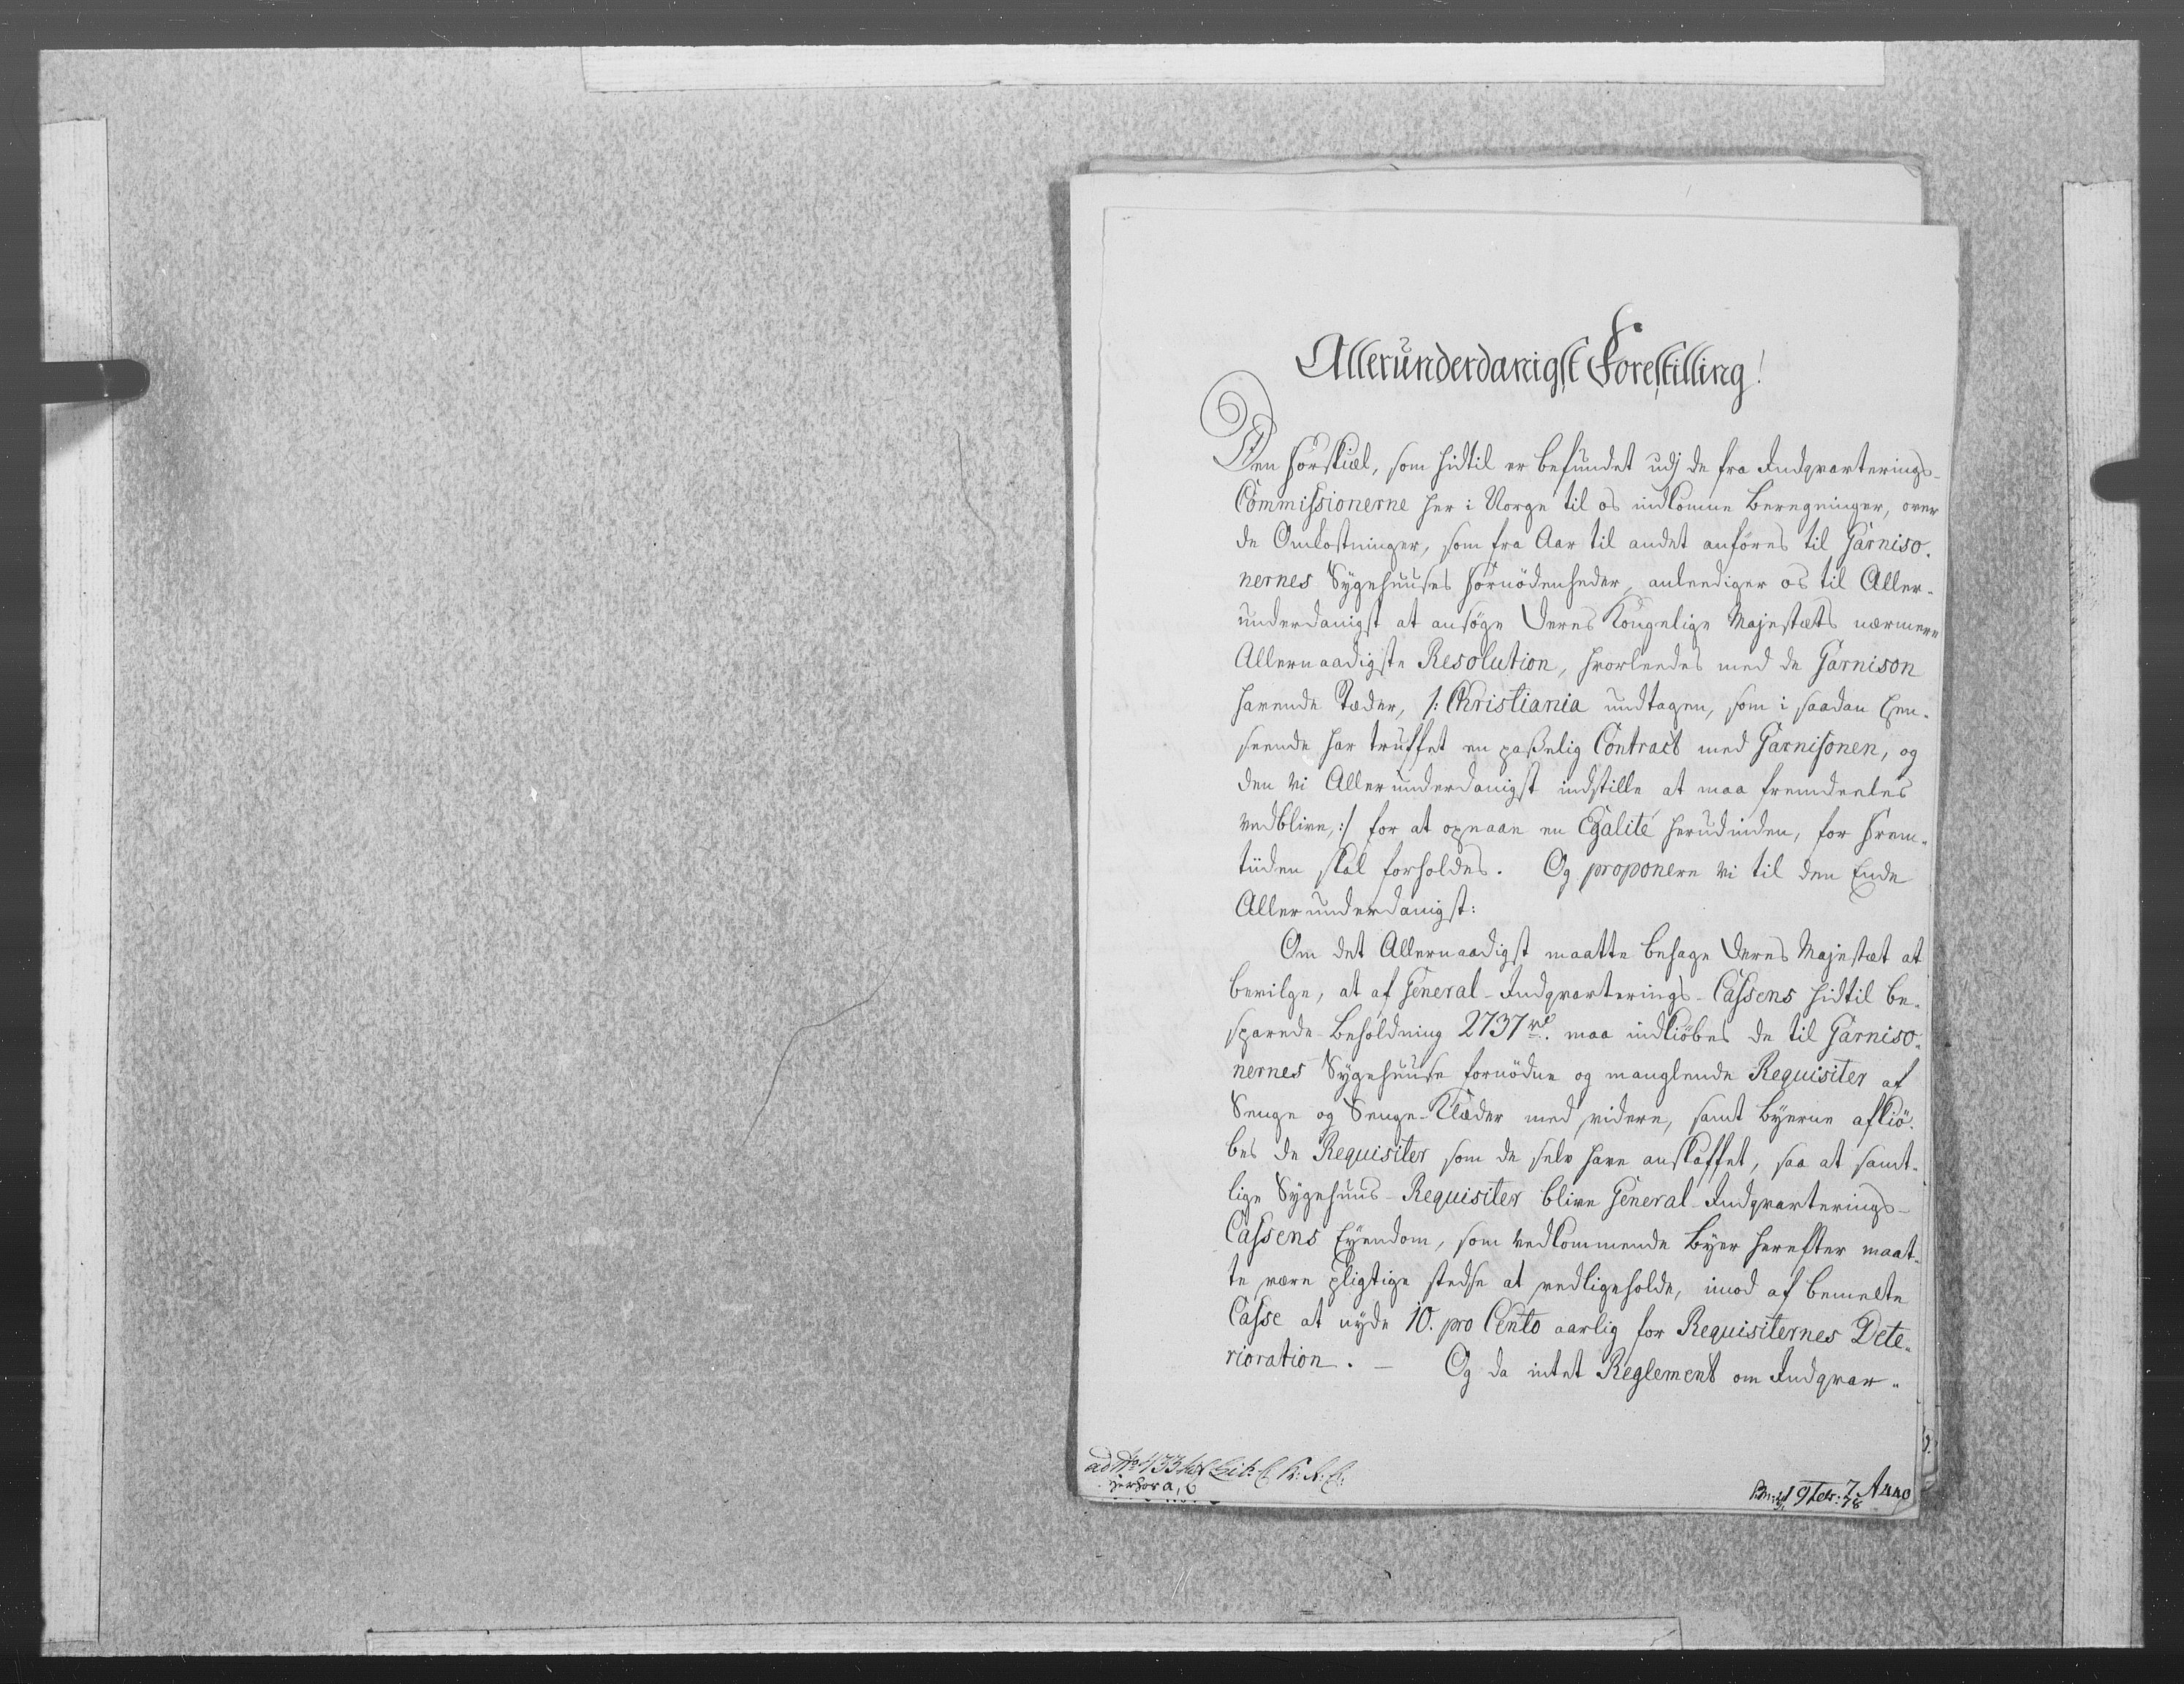 Allerunderdanigst Forestilling!
Den Forskiæl, som hidtil er befundet udj de fra Indqvarterings-
Commissionerne her i Norge til os indkomne Beregninger, over
de Omkostninger, som fra Aar til andet anföres til Garniso-
nernes Sygehuuses Fornödenheder, anleediger os til Aller-
underdanigst at ansöge Deres Kongelige Majestæts nærmere
Allernaadigste Resolution, hvorleedes med de Garnison
havende Stæder, /: Christiania undtagen, som i saadan Hen-
seende har truffet en paßelig Contract med Garnisonen, og
den vi Allerunderdanigst indstille at maa fremdeeles
vedblive, :/ for at opnaae en Egalité herudinden, for Frem-
tiiden skal forholdes. Og proponere vi til den Ende
Allerunderdanigst:
Om det Allernaadigst maatte behage Deres Majestæt at
bevilge, at af General-Indqvarterings-Cassens hidtil be-
sparede Beholdning 2737 rd. maa indkiöbes de til Garniso-
nernes Sygehuuse fornödne og manglende Requisiter af
Senge og Senge-Klæder med videre, samt Byerne afkiö-
bes de Requisiter som de selv have anskaffet, saa at samt-
lige Sygehuus-Requisiter blive General-Indqvarterings-
Cassens Eyendom, som vedkommende Byer herefter maat-
te være pligtige stedse at vedligeholde, imod af bemelte
Casse at nyde 10. pro Cento aarlig for Requisiternes Dete-
rioration. — Og da intet Reglement om Indqvar-
ad No 133